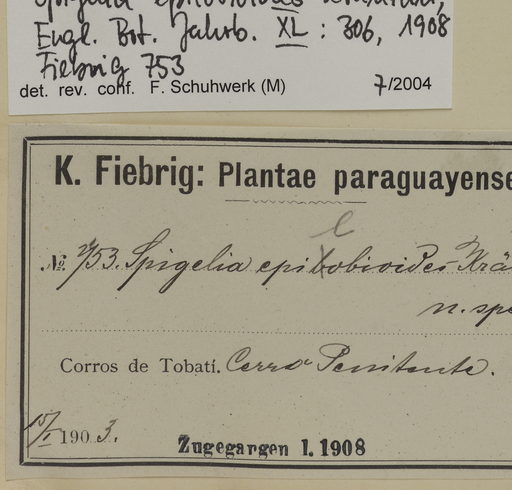 Spigelia epilobioides
Engl. Bot. Jahrb. XL : 306, 1908
Fiebrig 753
det. rev. conf. F. Schuhwerk (M) 7/2004
K. Fiebrig: Plantae paraguayense
l
№. 753. Spigelia epibobioides Krä
n. spe
Corros de Tobatí. Cerro Penitente.
15/I 1903.
Zugegangen 1. 1908